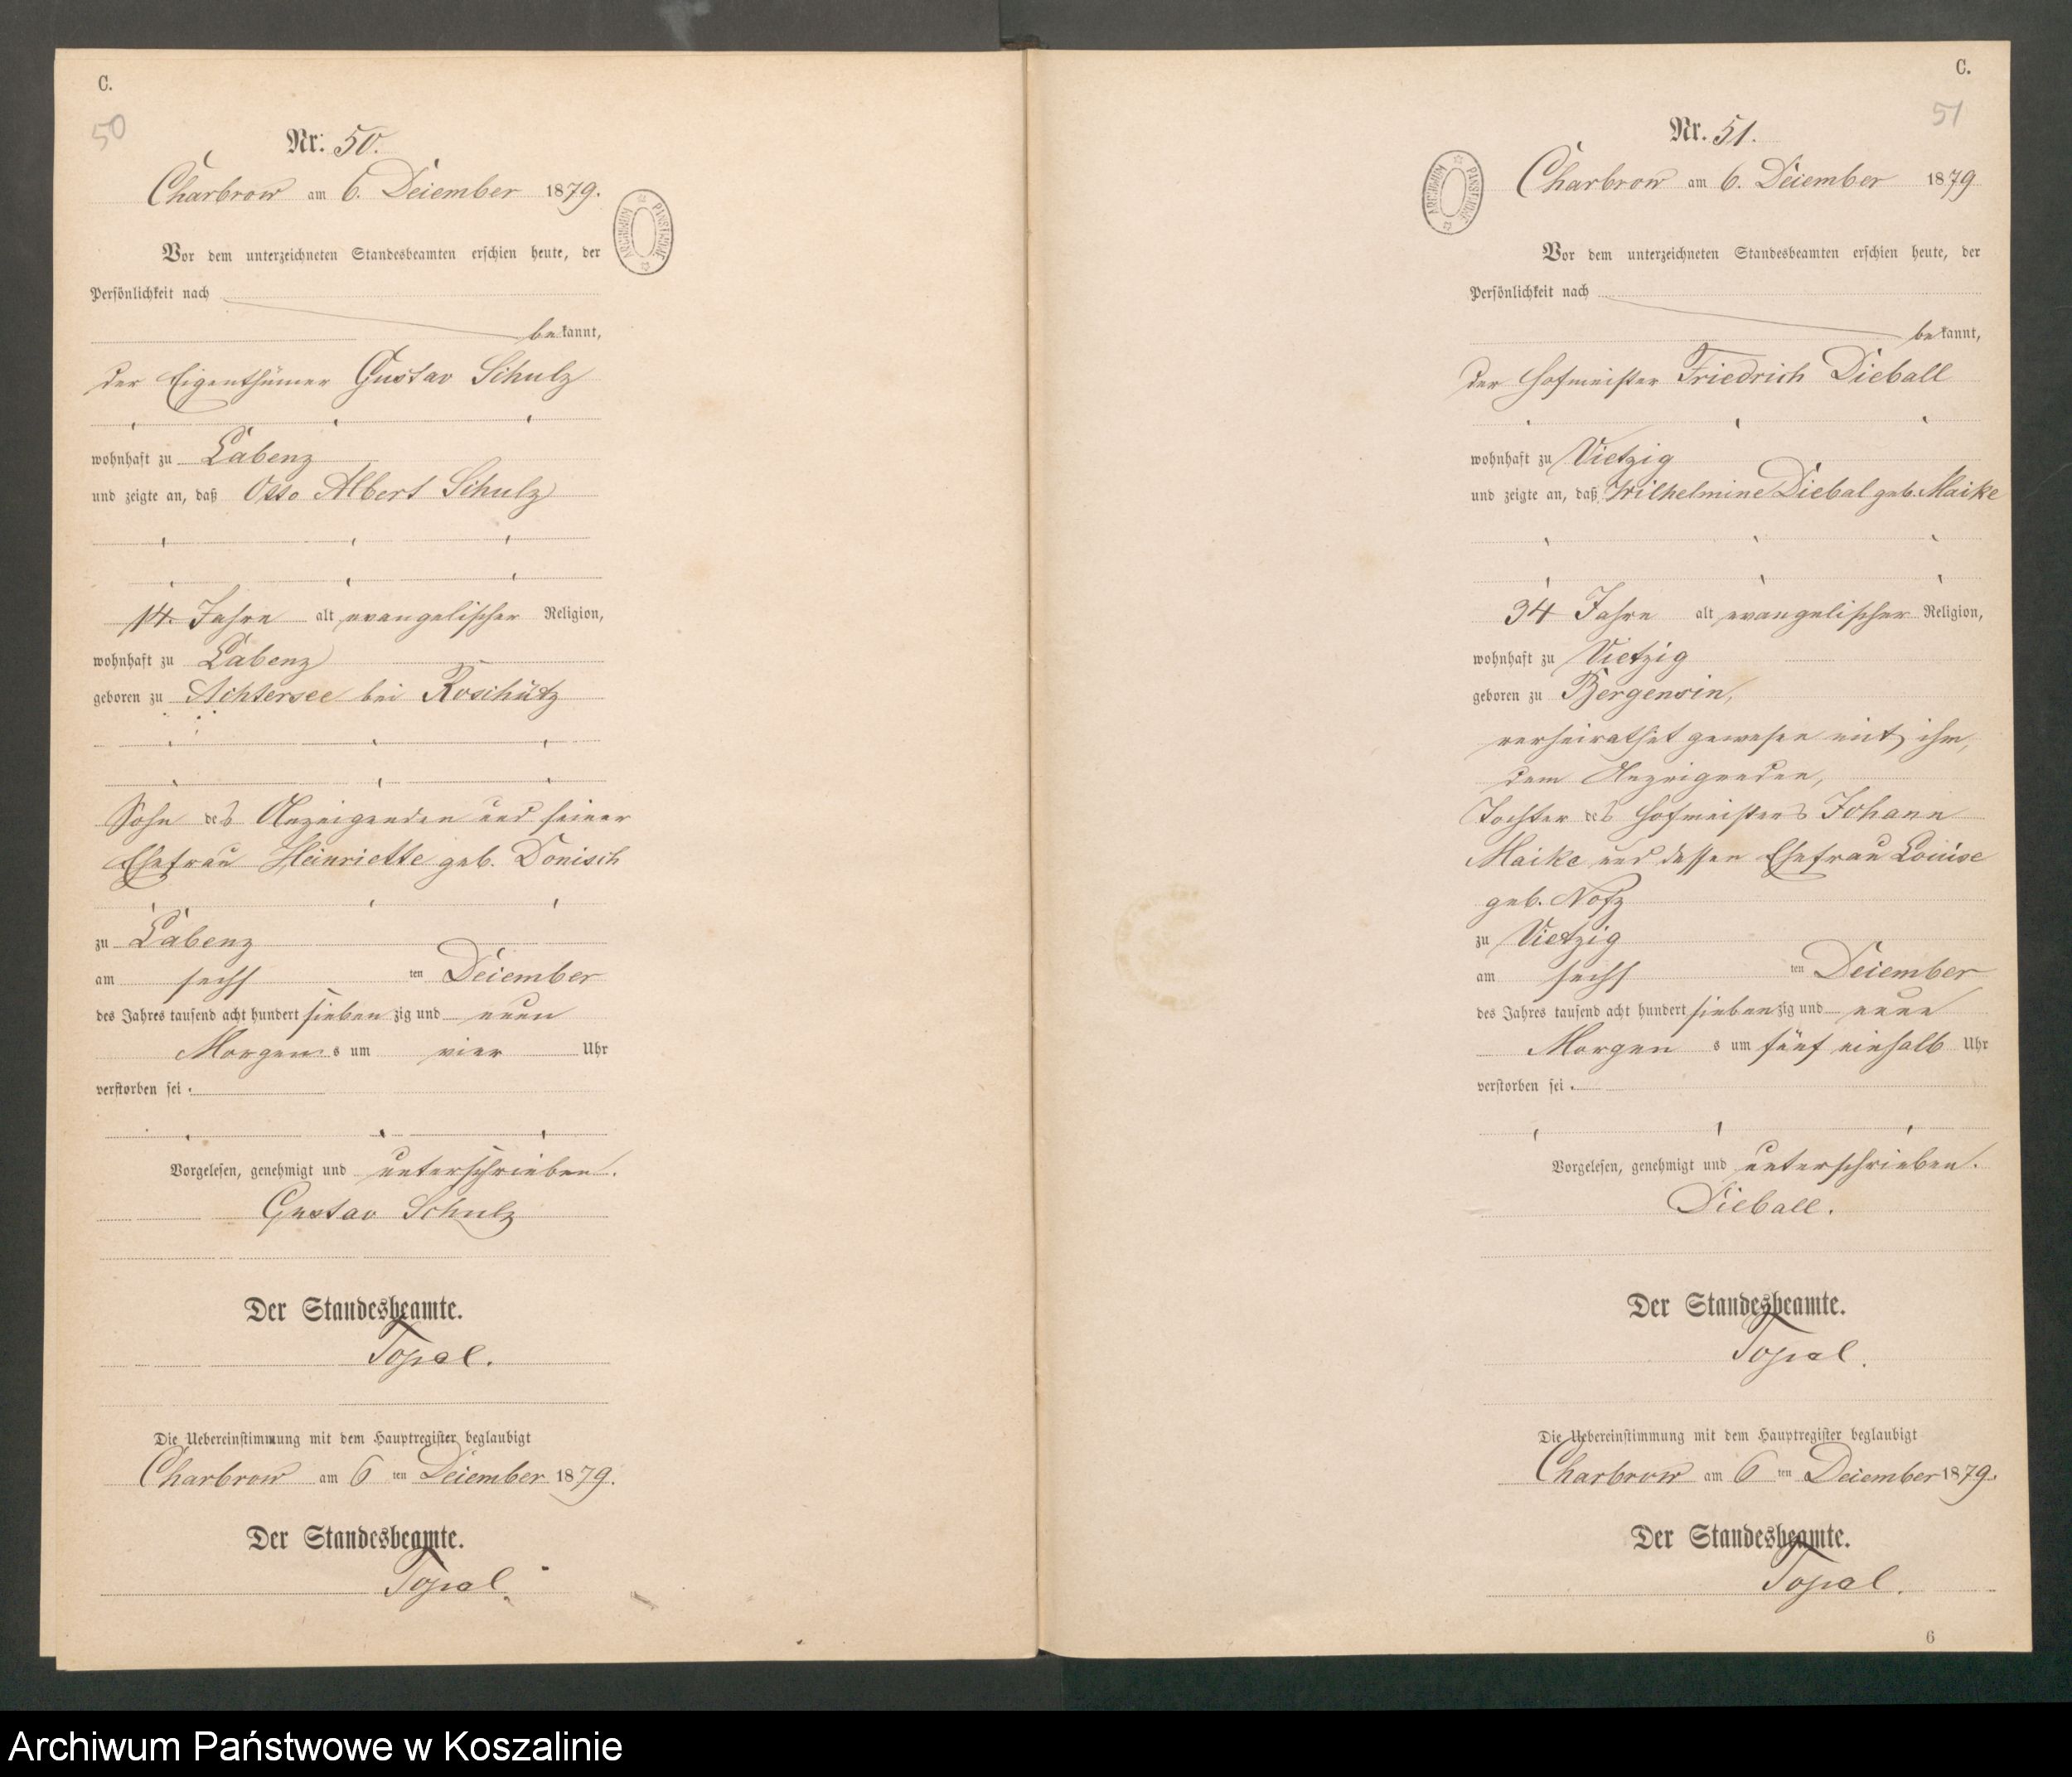 C.
50
Nr: 50.
Charbrow am 6. December 1879.
ARCHIWUM PAŃSTWOWE
Vor dem unterzeichneten Standesbeamten erschien heute, der
Persönlichkeit nach
bekannt,
der Eigenthümer Gustav Schulz
wohnhaft zu Labenz
und zeigte an, daß Otto Albert Schulz
14 Jahre alt evangelischer Religion,
wohnhaft zu Labenz
geboren zu Achtersee bei Roschütz
Sohn des Anzeigenden und seiner
Ehefrau Heinriette geb. Donisch
zu Labenz
am sechs ten December
des Jahres tausend acht hundert siebenzig und neun
Morgens um vier Uhr
verstorben sei.
Vorgelesen, genehmigt und unterschrieben.
Gustav Schulz
Der Standesbeamte.
Topal.
Die Uebereinstimmung mit dem Hauptregister beglaubigt
Charbrow am 6 ten December 1879.
Der Standesbeamte.
Topal.
C.
51
Nr. 51.
Charbrow am 6. December 1879
ARCHIWUM PAŃSTWOWE
Vor dem unterzeichneten Standesbeamten erschien heute, der
Persönlichkeit nach
bekannt,
der Hofmeister Friedrich Dieball
wohnhaft zu Vietzig
und zeigte an, daß Wilhelmine Diebal geb. Maike
34 Jahre alt evangelischer Religion,
wohnhaft zu Vietzig
geboren zu Bergensin,
verheirathet gewesen mit ihm,
dem Anzeigenden,
Tochter des Hofmeisters Johann
Maike und dessen Ehefrau Louise
geb. Notz
zu Vietzig
am sechs ten December
des Jahres tausend acht hundert siebenzig und neun
Morgens um fünf einhalb Uhr
verstorben sei.
Vorgelesen, genehmigt und unterschrieben.
Dieball.
Der Standesbeamte.
Topal.
Die Uebereinstimmung mit dem Hauptregister beglaubigt
Charbrow am 6 ten December 1879.
Der Standesbeamte.
Topal.
6
Archiwum Państwowe w Koszalinie